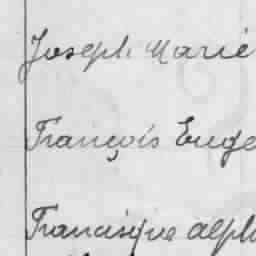 Joseph Marie
François Euge
Francisque alph